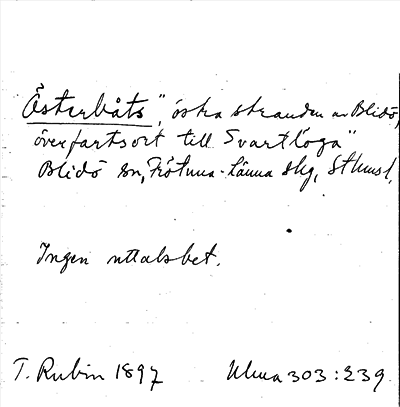 Österbåts", östra stranden av Blidö,
överfartsort till Svartlöga"
Blidö sn, Frötuna-Länna skg, Sthmsl.
Ingen uttalsbet.
T. Rubin 1897 Ulma 303:239